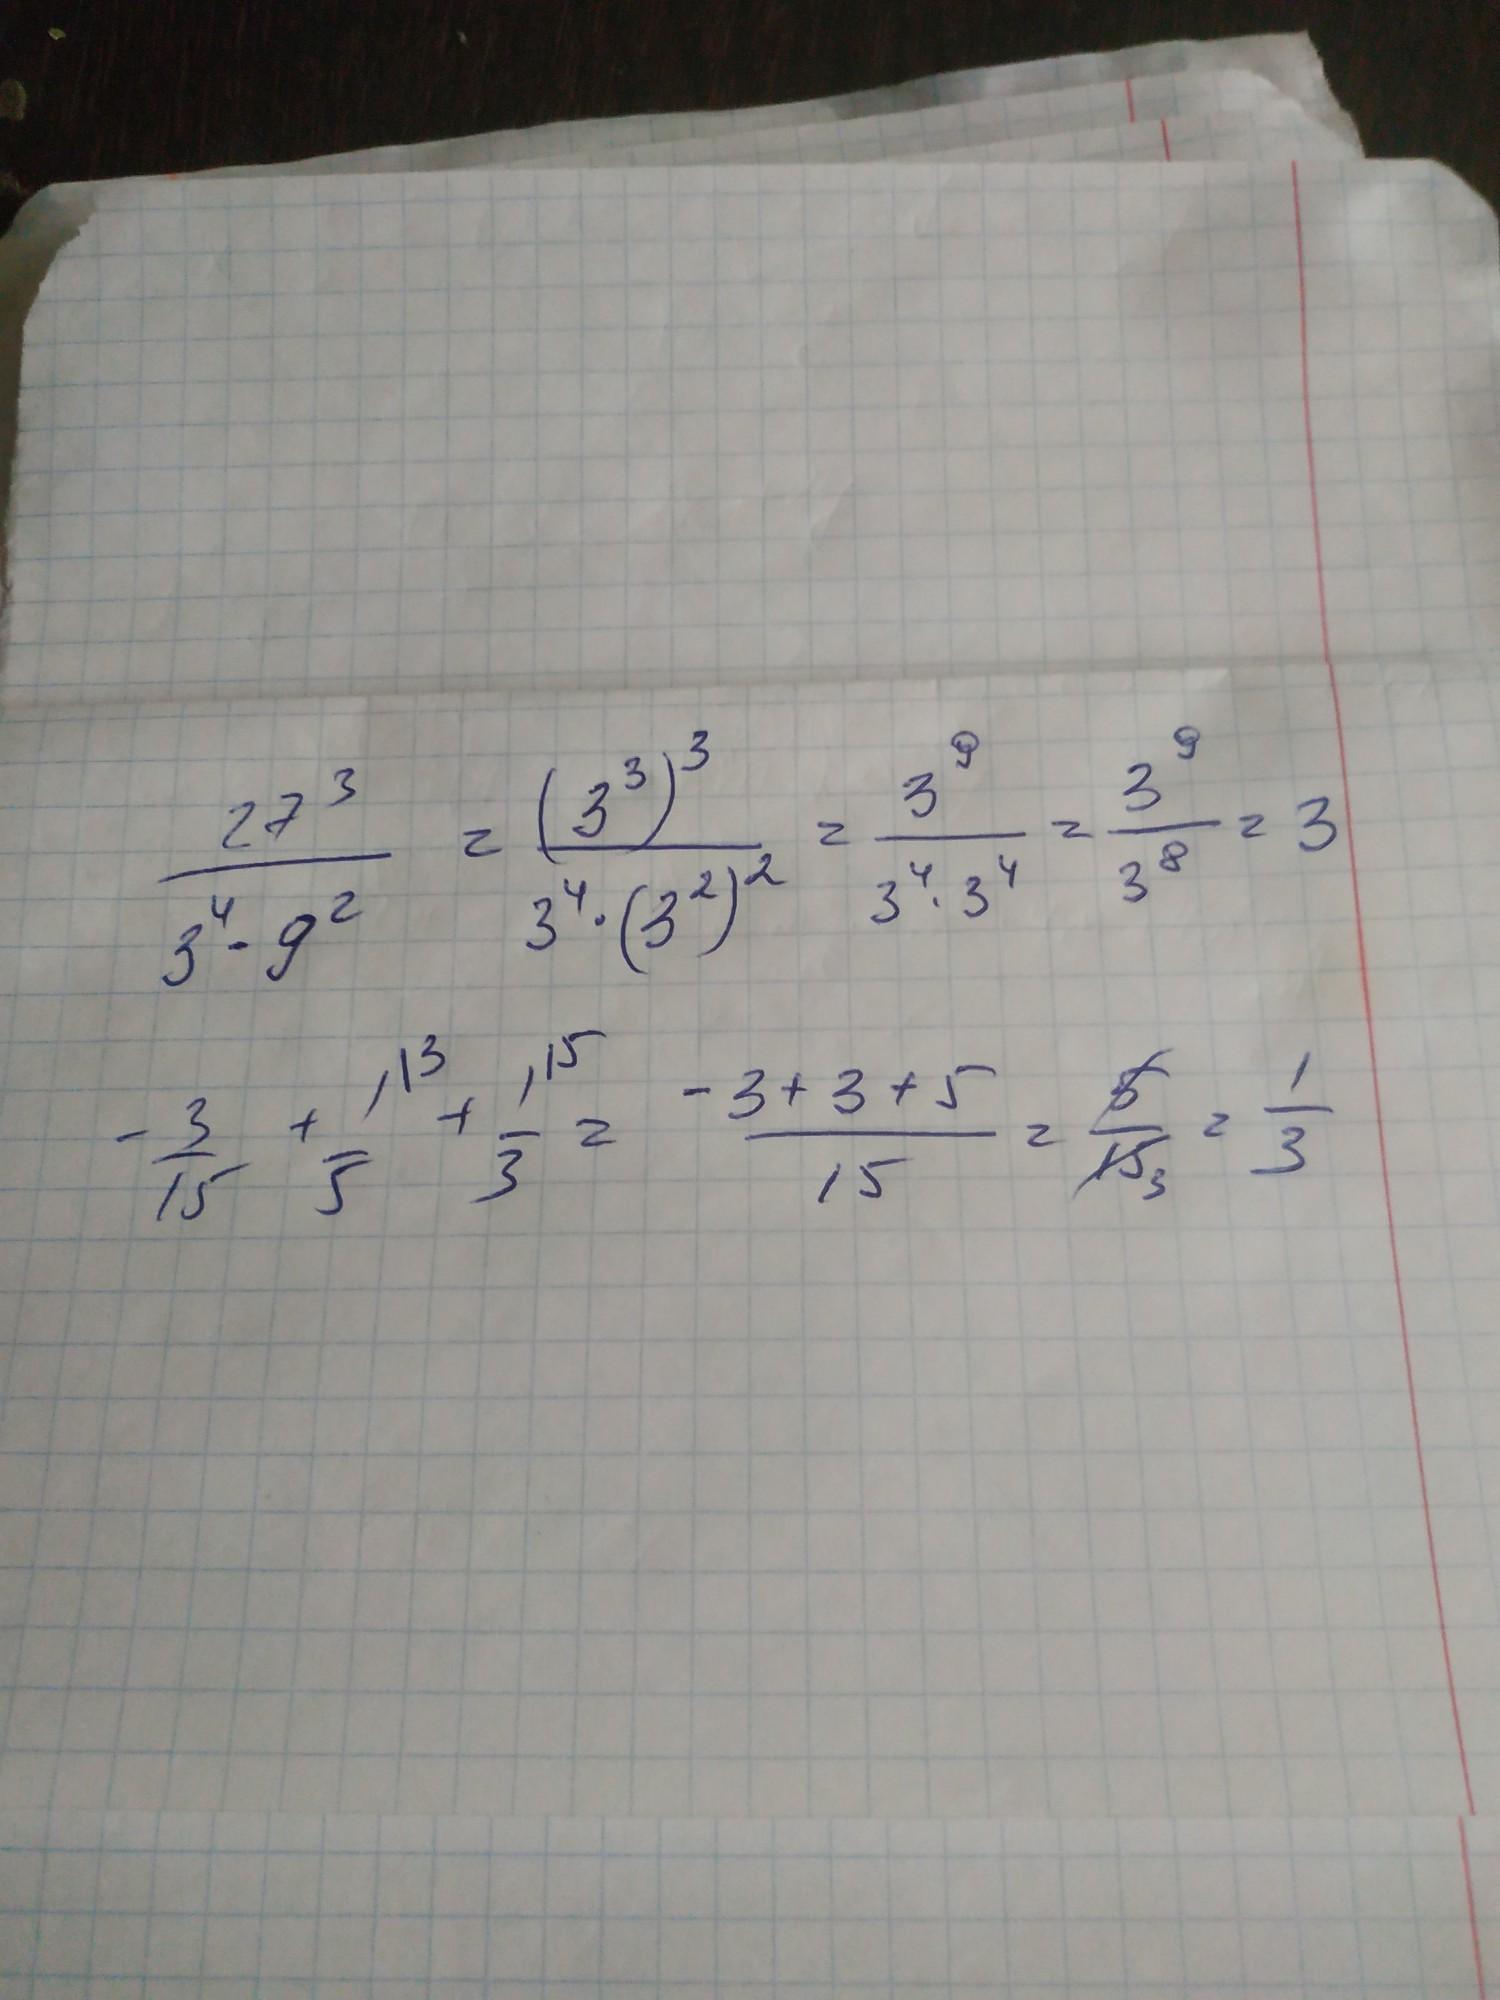 27³/(3⁴·9²) = (3³)³/(3⁴·(3²)²) = 3⁹/(3⁴·3⁴) = 3⁹/3⁸ = 3
-3/15 + 1/5 ⁽³ + 1/3 ⁽⁵ = (-3+3+5)/15 = 5/15 ₃ = 1/3